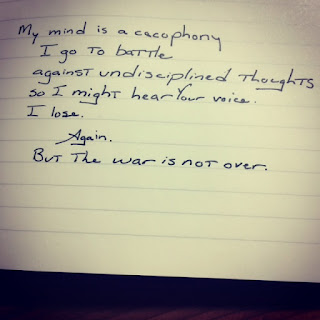 My mind is a cacophony
I go to battle
against undisciplined thoughts
so I might hear Your voice.
I lose.
Again.
But the war is not over.